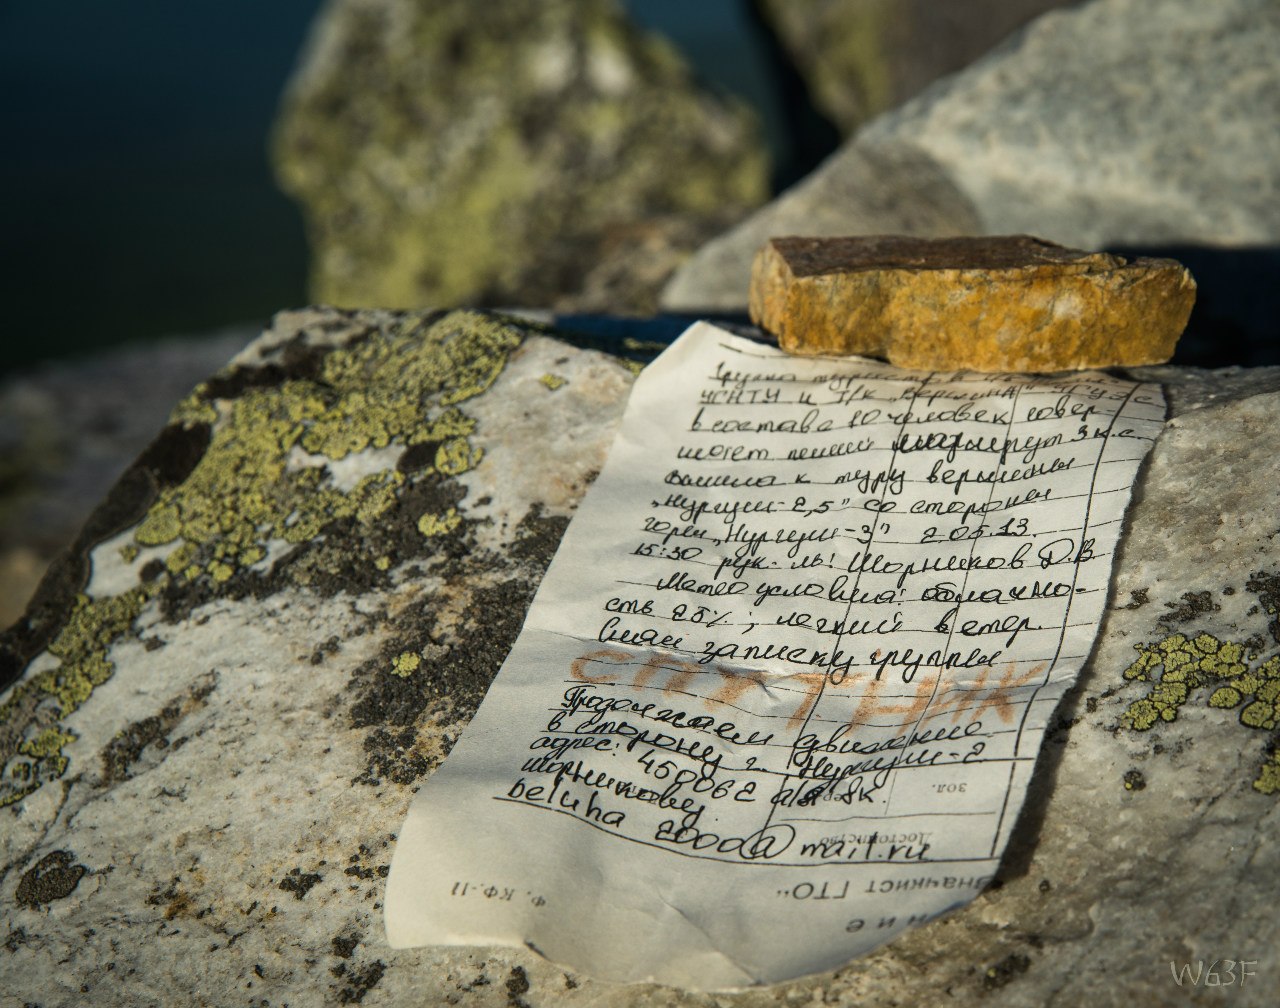 Группа туристов
УГНТУ и Т/К "Вершина"
в составе 10 человек совер-
шает пеший маршрут 3 к.с.
вышла к туру вершины
"Нургуш-2,5" со стороны
горы "Нургуш-3" 2.05.13.
15:30 рук-ль: Шорников Д.В
Метеоусловия: облачно-
сть 25%; легкий ветер.
Сняли записку группы
СПУТНИК
Продолжаем движение
в сторону г. Нургуш-2.
адрес: 450062 а/я
Шорникову.
beluha 2000@mail.ru
зол.
Достоинство
Значкист ГТО"
Ф. КФ-11
ние
W63F